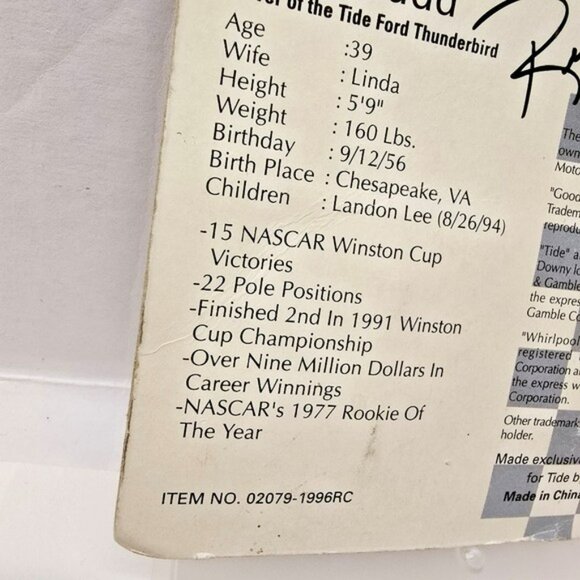 of the Tide Ford Thunderbird
Age :39
Wife : Linda
Height : 5'9"
Weight : 160 Lbs.
Birthday : 9/12/56
Birth Place : Chesapeake, VA
Children : Landon Lee (8/26/94)
-15 NASCAR Winston Cup
Victories
-22 Pole Positions
-Finished 2nd In 1991 Winston
Cup Championship
-Over Nine Million Dollars In
Career Winnings
-NASCAR's 1977 Rookie Of
The Year
ITEM NO. 02079-1996RC
The
own
Moto
"Good
Tradem
reprodu
"Tide" a
Downy lo
& Gamble
the expres
Gamble Co
"Whirlpool
registered
Corporation a
the express w
Corporation.
Other trademark
holder.
Made exclusiv
for Tide b
Made in China